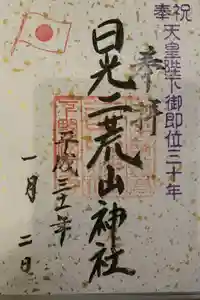 奉祝 天皇陛下御即位三十年
奉拝
日光二荒山神社
平成三十一年
一月 二日